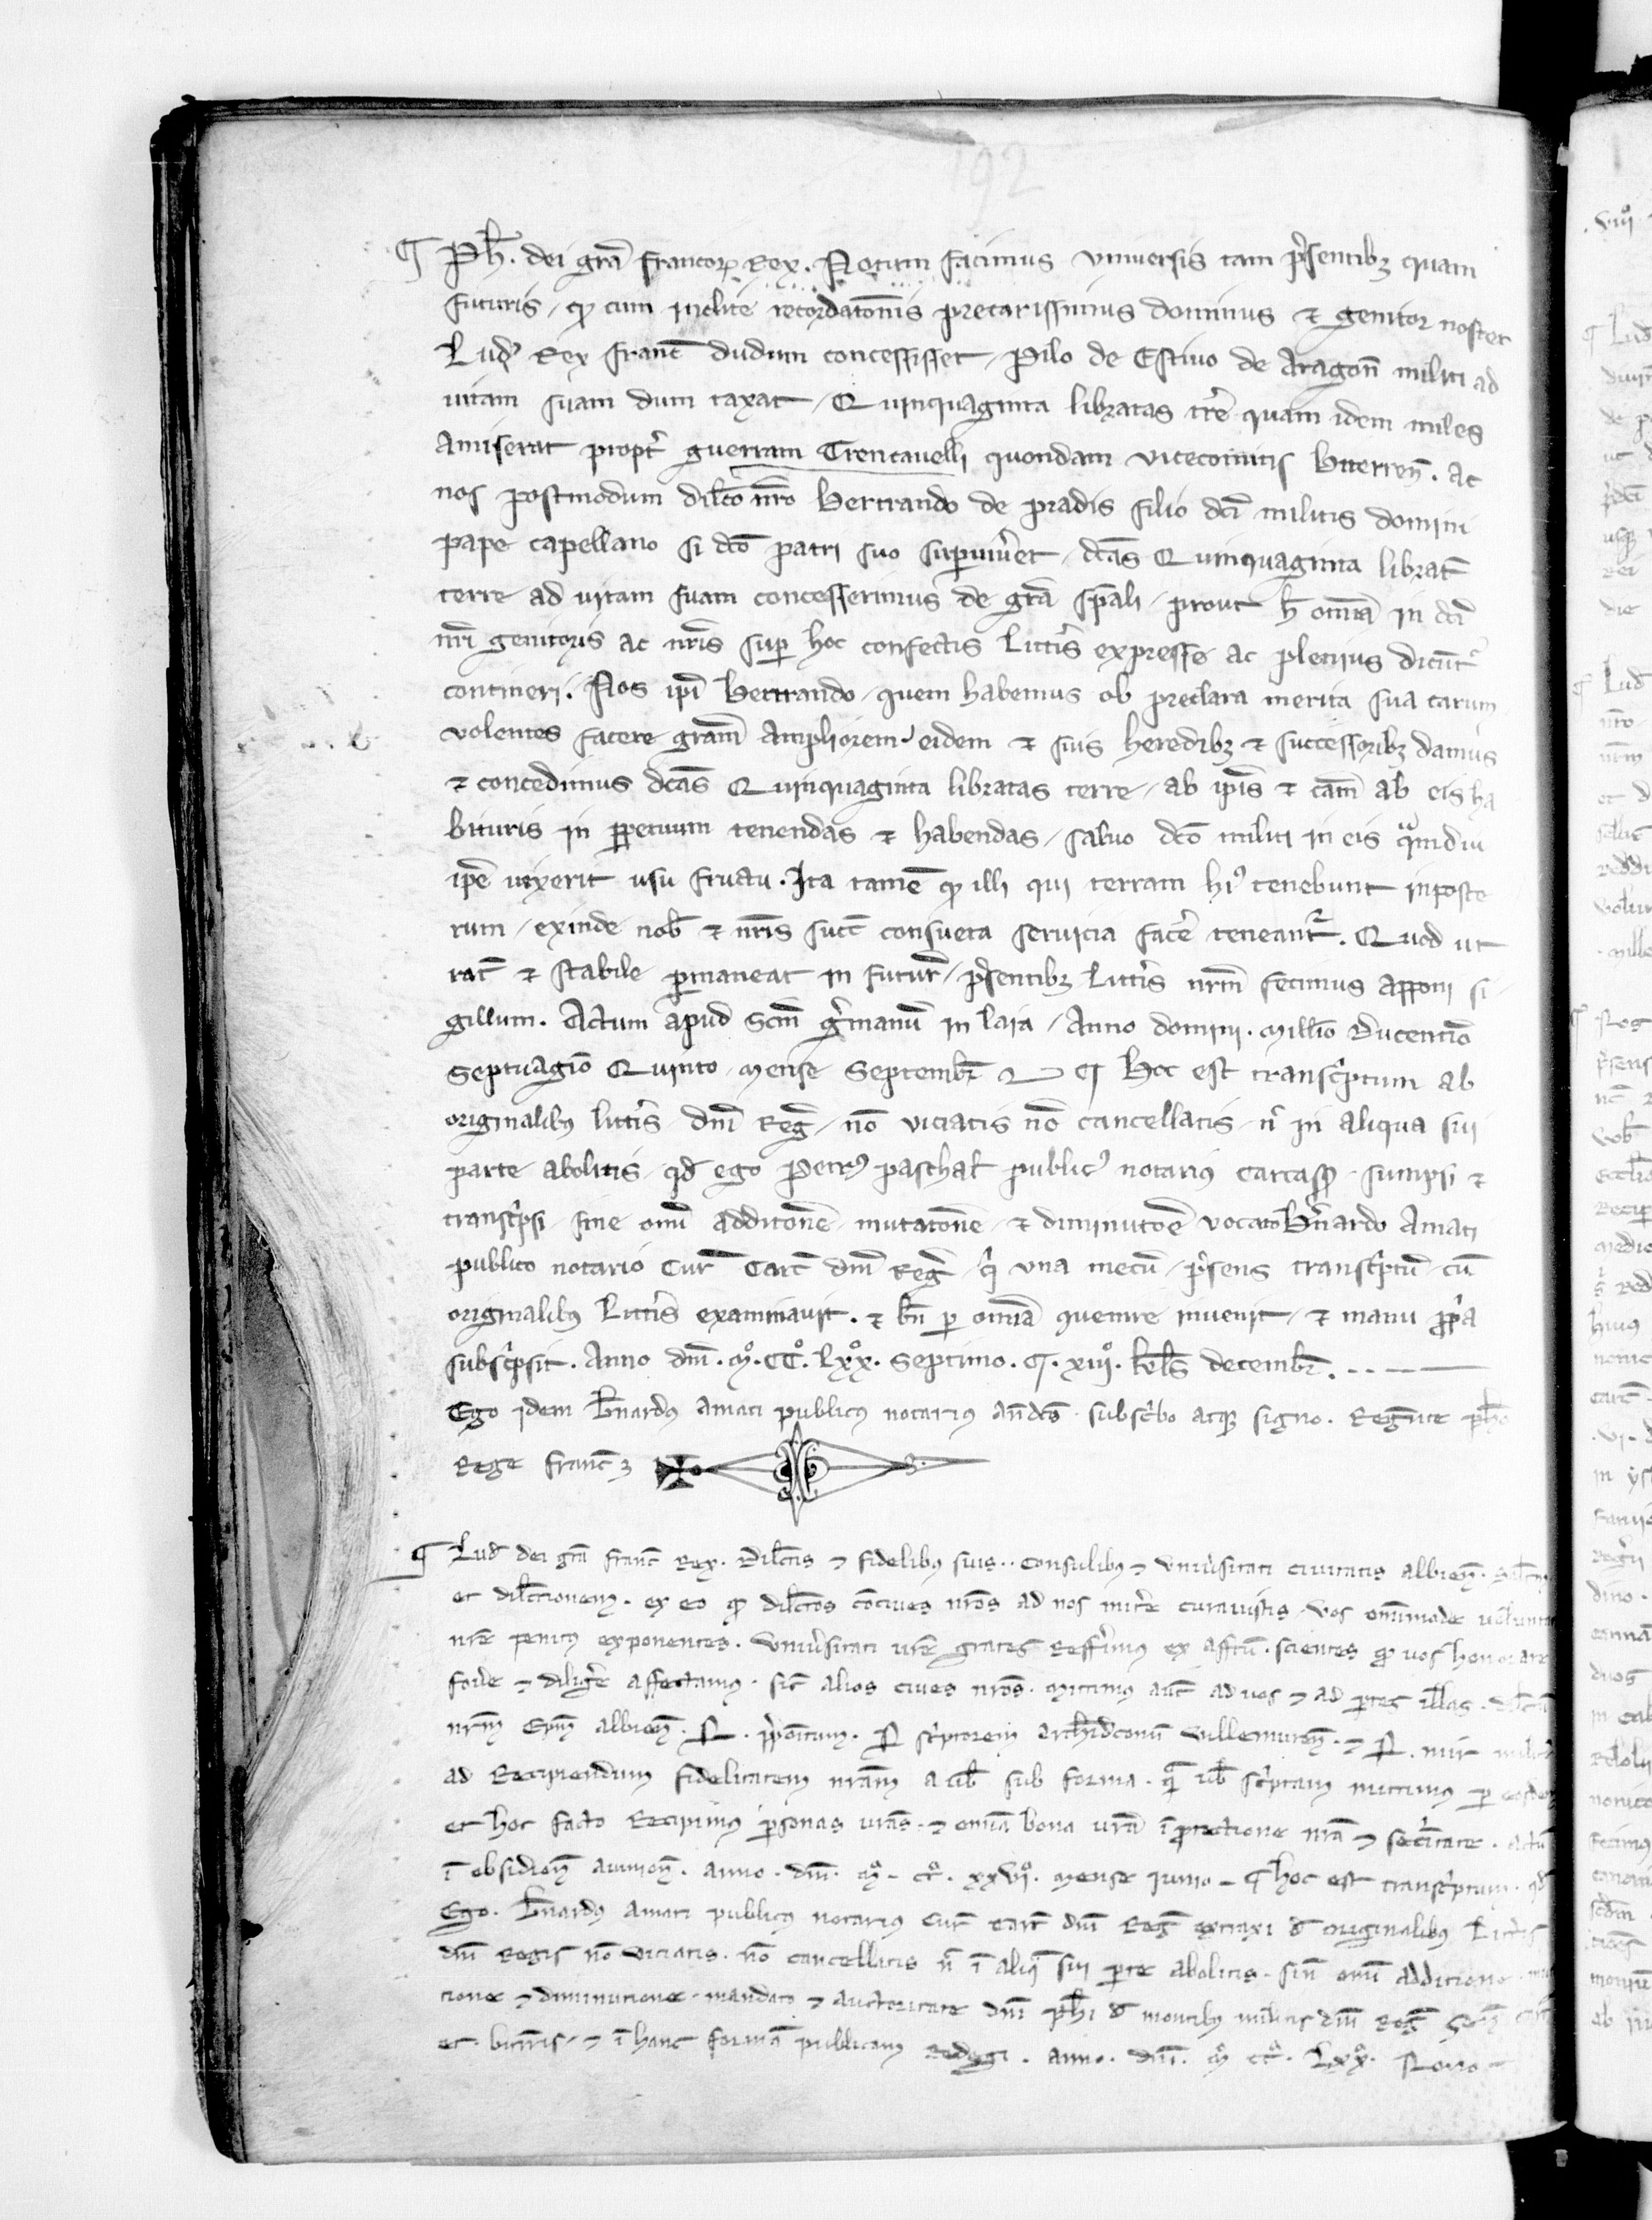 192
¶ Ph̄. dei gr̄a francoꝝ Rex. Notum facimus vniuersis tam p̄sentibꝫ quam
futuris, ꝙ cum inclite recordatōnis precarissimus dominus ⁊ genitor noster
Lud' Rex franc̄ dudum concessisset, Pilo de Estiuo de Aragon̄ militi ad
uitam suam dum taxat, Quinquaginta libratas tr̄e quam idem miles
amiserat propt̄ guerram Trencauelli quondam vicecomitis Biterren̄. Ac
nos postmodum dilc̄o nr̄o Bertrando de pradis filio dc̄i militis domini
pape capellano si dc̄o patri suo sup̄uiu̓et, dc̄as Quinquaginta librat̄
terre ad uitam suam concesserimus de gr̄a sp̄ali, prout h̄ om̄ia in dc̄i
nr̄i genitoris ac nr̄is sup̄ hoc confectis litt̄is expresse ac plenius dicūt'
contineri. Nos ip̄i Bertrando, quem habemus ob preclara merita sua carum
volentes facere gr̄am ampliorem, eidem ⁊ suis heredibꝫ ⁊ successoribꝫ damus
⁊ concedimus dc̄as Quinquaginta libratas terre, ab ip̄is ⁊ cām ab eis ha
bituris in ꝑpetuum tenendas ⁊ habendas, saluo dc̄o militi in eis quādiu
ip̄e uixerit usu fructu. Ita tamē ꝙ illi qui terram hi' tenebunt inposte
rum, exinde nob̄ ⁊ nr̄is succ̄ consueta seruicia facē teneant'. Quod ut
rat̄ ⁊ stabile ꝑmaneat in futur̄, p̄sentibꝫ litt̄is nr̄m fecimus apponi si-
gillum. Actum apud Sc̄m g̓manū in laia, Anno domini. Mill̄io Ducentīo
Septuagīo Quinto, mense Septembr̄ ¶ Hoc est transc̓ptum ab
originalibꝰ litt̄is dn̄i Reḡ, nō viciatis nō cancellatis, n̄ in aliqua sui
parte abolitis, qd̄ ego Petrꝰ paschal̄ publicꝰ notariꝰ Carcass̄, sumpsi ⁊
transc̓psi, sine om̄i additōne, mutatōne, ⁊ diminutōe vocato B̓nardo Amati
publico notario Cur̄ Carc̄ dn̄i Reḡ, q̓ vna mecū, p̄sens transc̓ptū, cū
originalibꝰ litt̄is examinauit. ⁊ bn̄ ꝑ om̄ia ꝯuenire inuenit, ⁊ manu ꝓp̓a
subsc̓psit. Anno dn̄i. M̊. CC̊. Lxx̊. Septimo. xiiij̊. kl̄s decembr̄.
Ego idem B̓nardꝰ amati publicꝰ notariꝰ an̄dc̄s subsc̓bo atqꝫ signo. Regn̄te ph̄o
Rege franc̄ꝫ
¶ Lud' dei gr̄a franc̄ Rex. Dilc̄is ⁊ fidelibꝰ suis.. consulibꝰ ⁊ vniu̓sitati ciuitatis albien̄.
et dilcc̄ionem. ex eo ꝙ dilcc̄os cōciues nr̄os ad nos mitt̄e curauistis, vos om̄imode
nr̄e penitꝰ exponentes. Vniu̓sitati ur̄e grates Reff̓imꝰ ex affc̄u. scientes ꝙ uos honorare
fou̓e ⁊ dilig̓e affectamꝰ. sic̄ alios ciues nr̄os. Mittimꝰ aut̄ ad uos ⁊ ad ꝑtes illas.
nr̄m Ep̄m albien̄. ⁊ P. sc̓ptorem archid̄conū Villemuren̄. ⁊ P. mir
ad Recipiendum fidelitatem nr̄am a ub̄ sub forma. qā ub̄ sc̓ptam mittimꝰ ꝑ eosdem
et hoc facto Recipimꝰ ꝑsonas ur̄as. ⁊ om̄ia bona ur̄a ī ꝓtectione nr̄a ⁊ sec̓itate. actū
ī obsidion̄ auinion̄. anno. dn̄i. m̊. cc̊. xxvi̊. Mense iunio. ¶ hoc est transc̓ptum. qd̄
Ego. B̓nardꝰ Amati publicꝰ notariꝰ Cur̄ carc̄ dn̄i Reḡ extraxi de originalibꝰ Litt̄is
dn̄i Regis nō viciatis. nō cancellatis n̄ ī aliq̄ sui ꝑte abolitis. sin̄ om̄i additione.
tione ⁊ diminutione. mandato ⁊ auctoritate dn̄i ph̄i de montibꝰ militis dn̄i Reḡ Sen̄
et. bit̄ris, ⁊ ī hanc formā publicam Redegi. anno. dn̄i. m̊ cc̊. Lxx̊. Nono